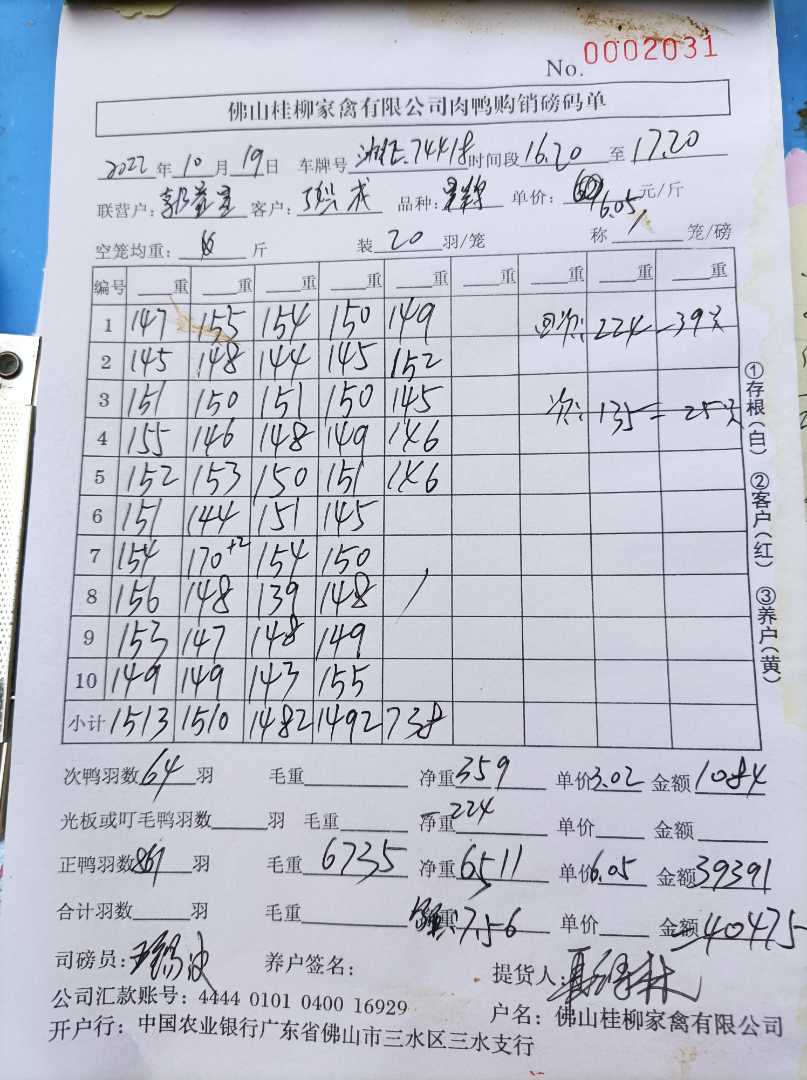 No. 0002031
佛山桂柳家禽有限公司肉鸭购销磅码单
2022年10月19日 车牌号 74418 时间段 16.20 至 17.20
联营户: 客户: 品种: 单价: 6.05 元/斤
空笼均重: 斤 装 20 羽/笼 称 1 笼/磅
编号 重 重 重 重 重 重 重 重 重
1 147 155 154 150 149 回次: 224 - 39只
2 145 148 144 145 152
3 151 150 151 150 145 次: 135 = 25只
4 155 146 148 149 146
5 152 153 150 151 146
6 151 144 151 145
7 154 170+2 154 150
8 156 148 139 148 /
9 153 147 148 149
10 149 149 143 155
小计 1513 1510 1482 1492 738
次鸭羽数 64 羽 毛重 净重 359 单价 3.02 金额 1084
光板或叮毛鸭羽数 羽 毛重 净重 -224 单价 金额
正鸭羽数 861 羽 毛重 6735 净重 6511 单价 6.05 金额 39391
合计羽数 羽 毛重 重 7.56 单价 金额 40475
司磅员: 养户签名: 提货人:
公司汇款账号: 4444 0101 0400 16929 户名: 佛山桂柳家禽有限公司
开户行: 中国农业银行广东省佛山市三水区三水支行
①存根(白) ②客户(红) ③养户(黄)